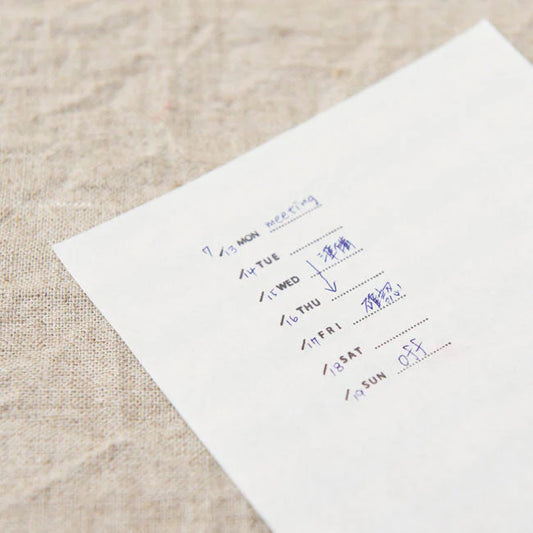 7/13 MON meeting
/14 TUE
/15 WED 準備
/16 THU
/17 FRI 確認
/18 SAT
/19 SUN off